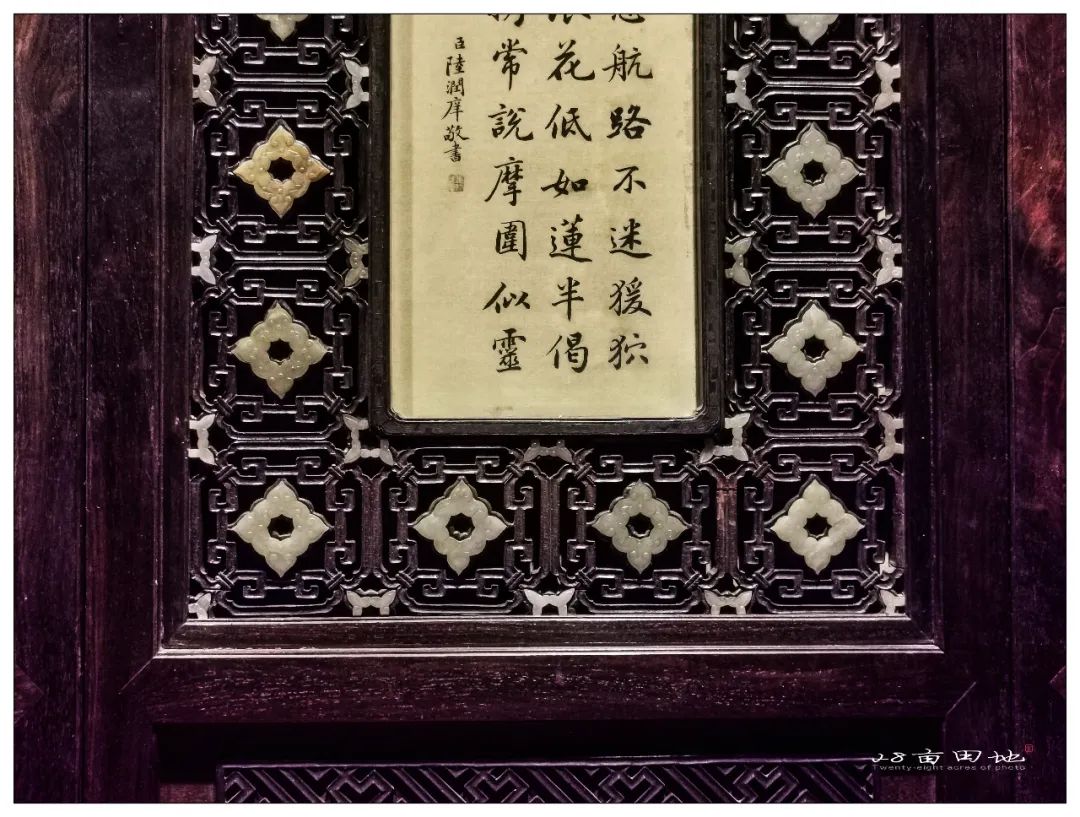 航路不迷猨狖
花低如蓮半偈
常說摩圍似靈
臣陸潤庠敬書
28亩田地
Twenty-eight acres of photo